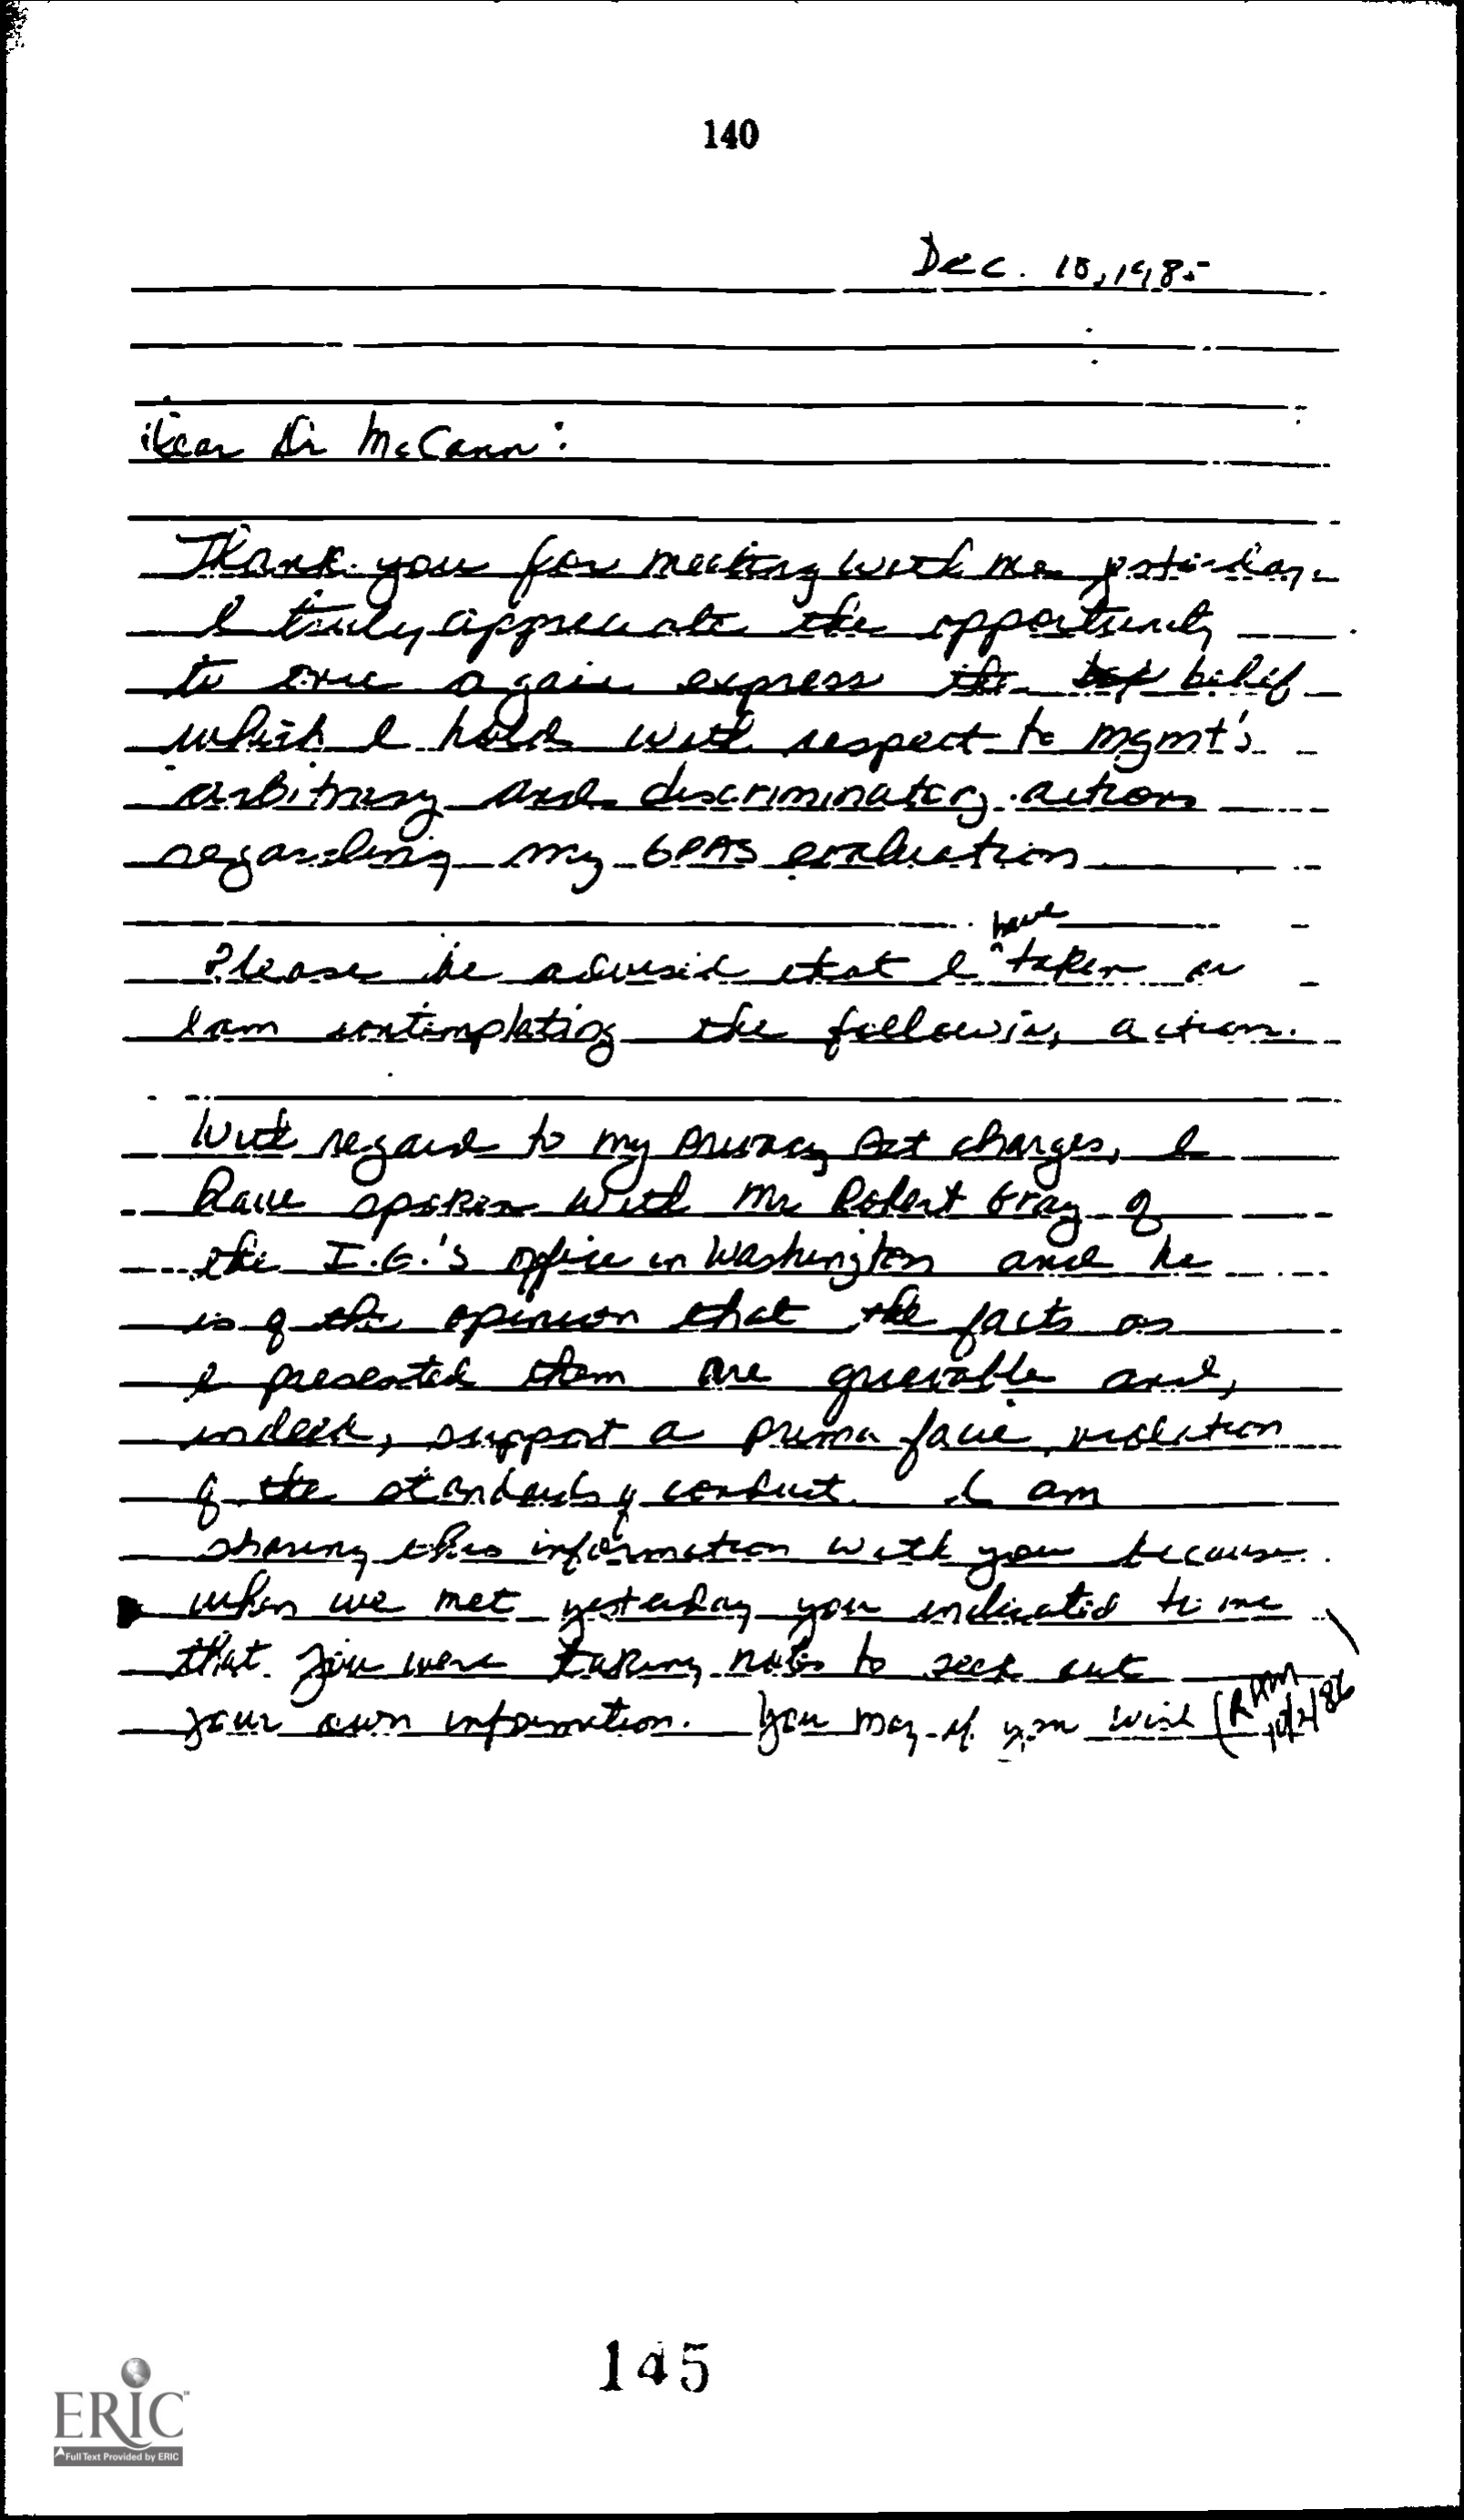 140
Dec. 18, 1985
Dear Dr McCann:
Thank you for meeting with me yesterday.
I truly appreciate the opportunity
to once again express the belief
which I hold with respect to mgmt's
arbitrary and discriminatory actions
regarding my GPAS evaluation
have
Please be advised that I taken or
I am contemplating the following action.
With regard to my Privacy Act charges, I
have spoken with Mr Robert Gray of
the I.G.'s office in Washington and he
is of the opinion that the facts as
I presented them are grievable and,
indeed, support a prima facie violation
of the standards of conduct. I am
sharing this information with you because
when we met yesterday you indicated to me
that you were taking notes to seek out
your own information. You may if you wish
145
ERIC
Full Text Provided by ERIC